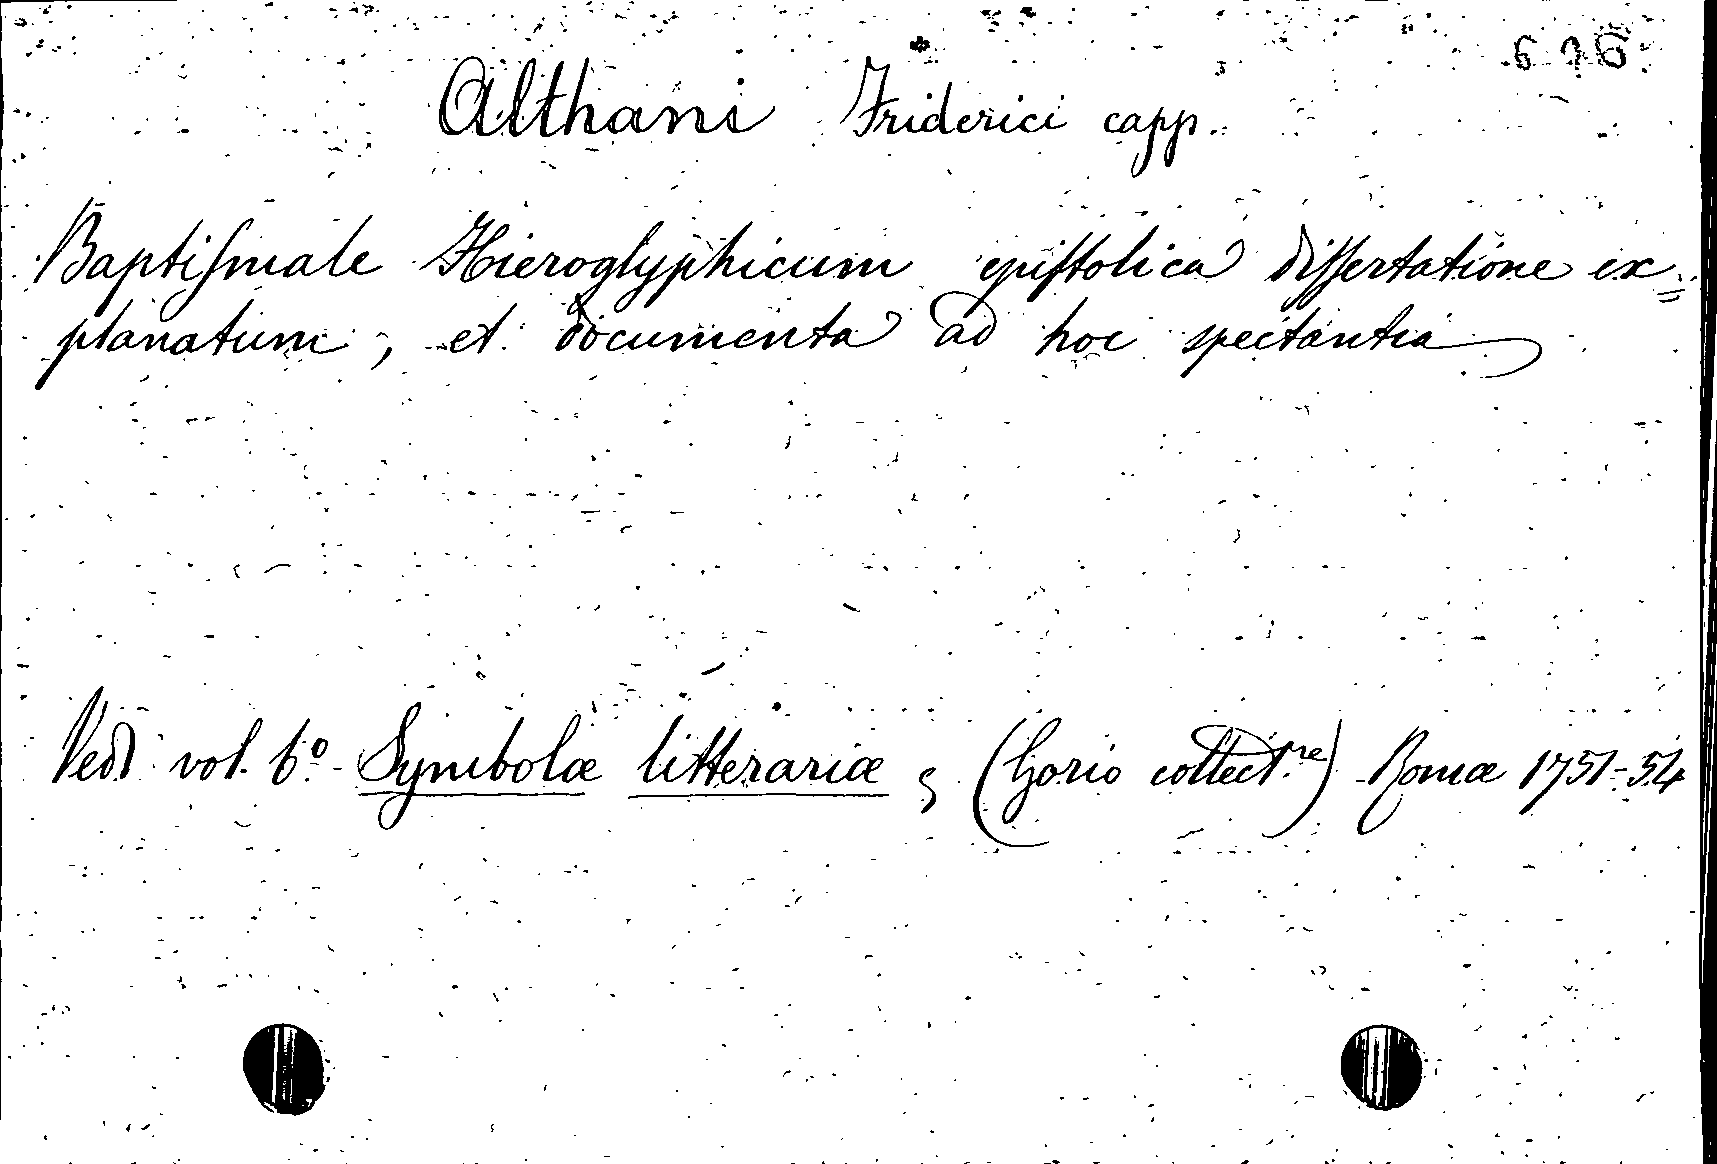 696
Althani Friderici capp.
Baptiſmale Hieroglyphicum epiſtolica diſſertatione ex=
planatum, et documenta ad hoc spectantia
Vedi vol. 6.º Symbolæ litterariæ, (Gorio collect.re) Romæ 1751-54